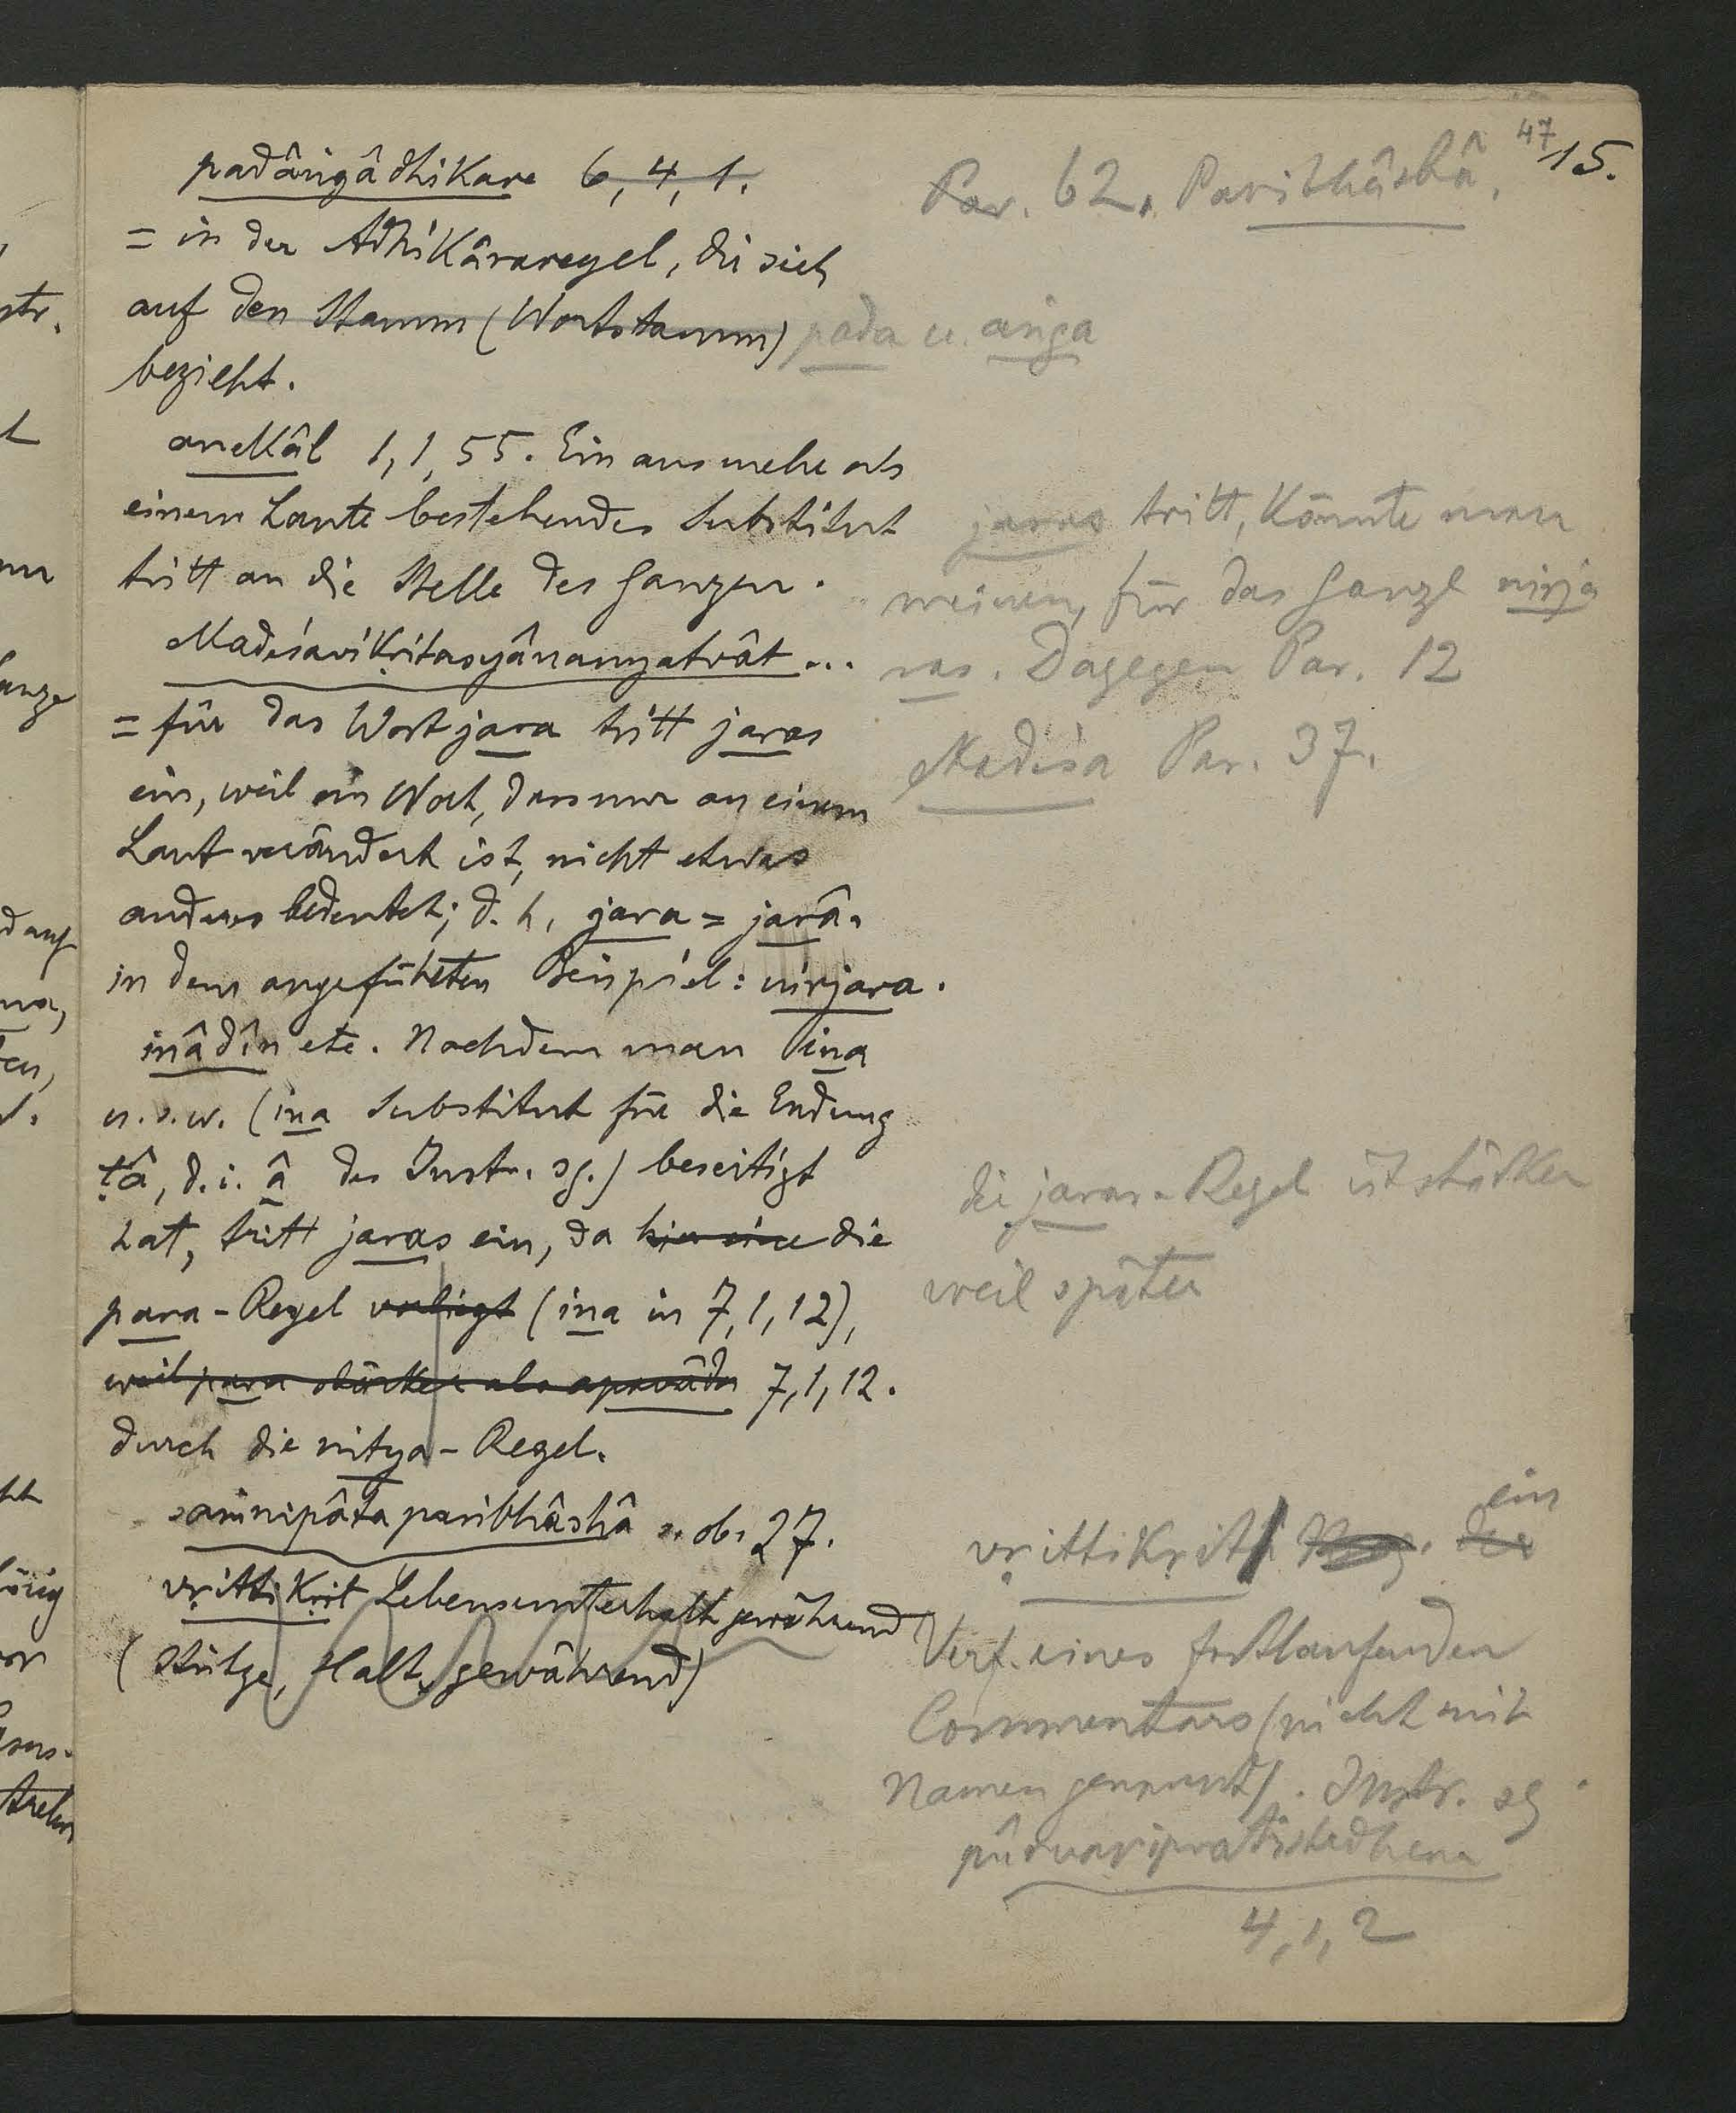 47
15.
padângâdhikare 6, 4, 1.
= in der Adhikâraregel, die sich
auf den Stamm (Wortstamm) pada u. anga
bezieht.
anekâl 1, 1, 55. Ein aus mehr als
einem Laute bestehendes Substitut
tritt an die Stelle des Ganzen.
ekadeśavikṛitasyânanyatvât ...
= für das Wort jara tritt jaras
ein, weil ein Wort, das nur an einem
Laut verändert ist, nicht etwas
anderes bedeutet; d. h. jara = jarâ.
in dem angeführten Beispiel: nirjara.
inâdîn etc. Nachdem man ina
u. s. w. (ina Substitut für die Endung
ṭâ, d. i. â des Instr. sg.) beseitigt
hat, tritt jaras ein, da hier eine die
para-Regel vorliegt (ina in 7, 1, 12),
weil para stärker als apavâda 7, 1, 12.
durch die nitya-Regel.
saṃnipâtaparibhâshâ s. ob. 27.
vṛittikṛit Lebensunterhalt gewährend
(Stütze, Halt, gewährend)
Par. 62. Paribhâshâ.
jaras tritt, könnte man
meinen, für das Ganze nirja
ras. Dagegen Par. 12
ekadeśa Par. 37.
die jaras-Regel ist stärker
weil später
vṛittikṛit die ein
Verf. eines fortlaufenden
Commentars (nicht mit
Namen genannt). Instr. sg.
pûrvavipratishedhena
4, 1, 2